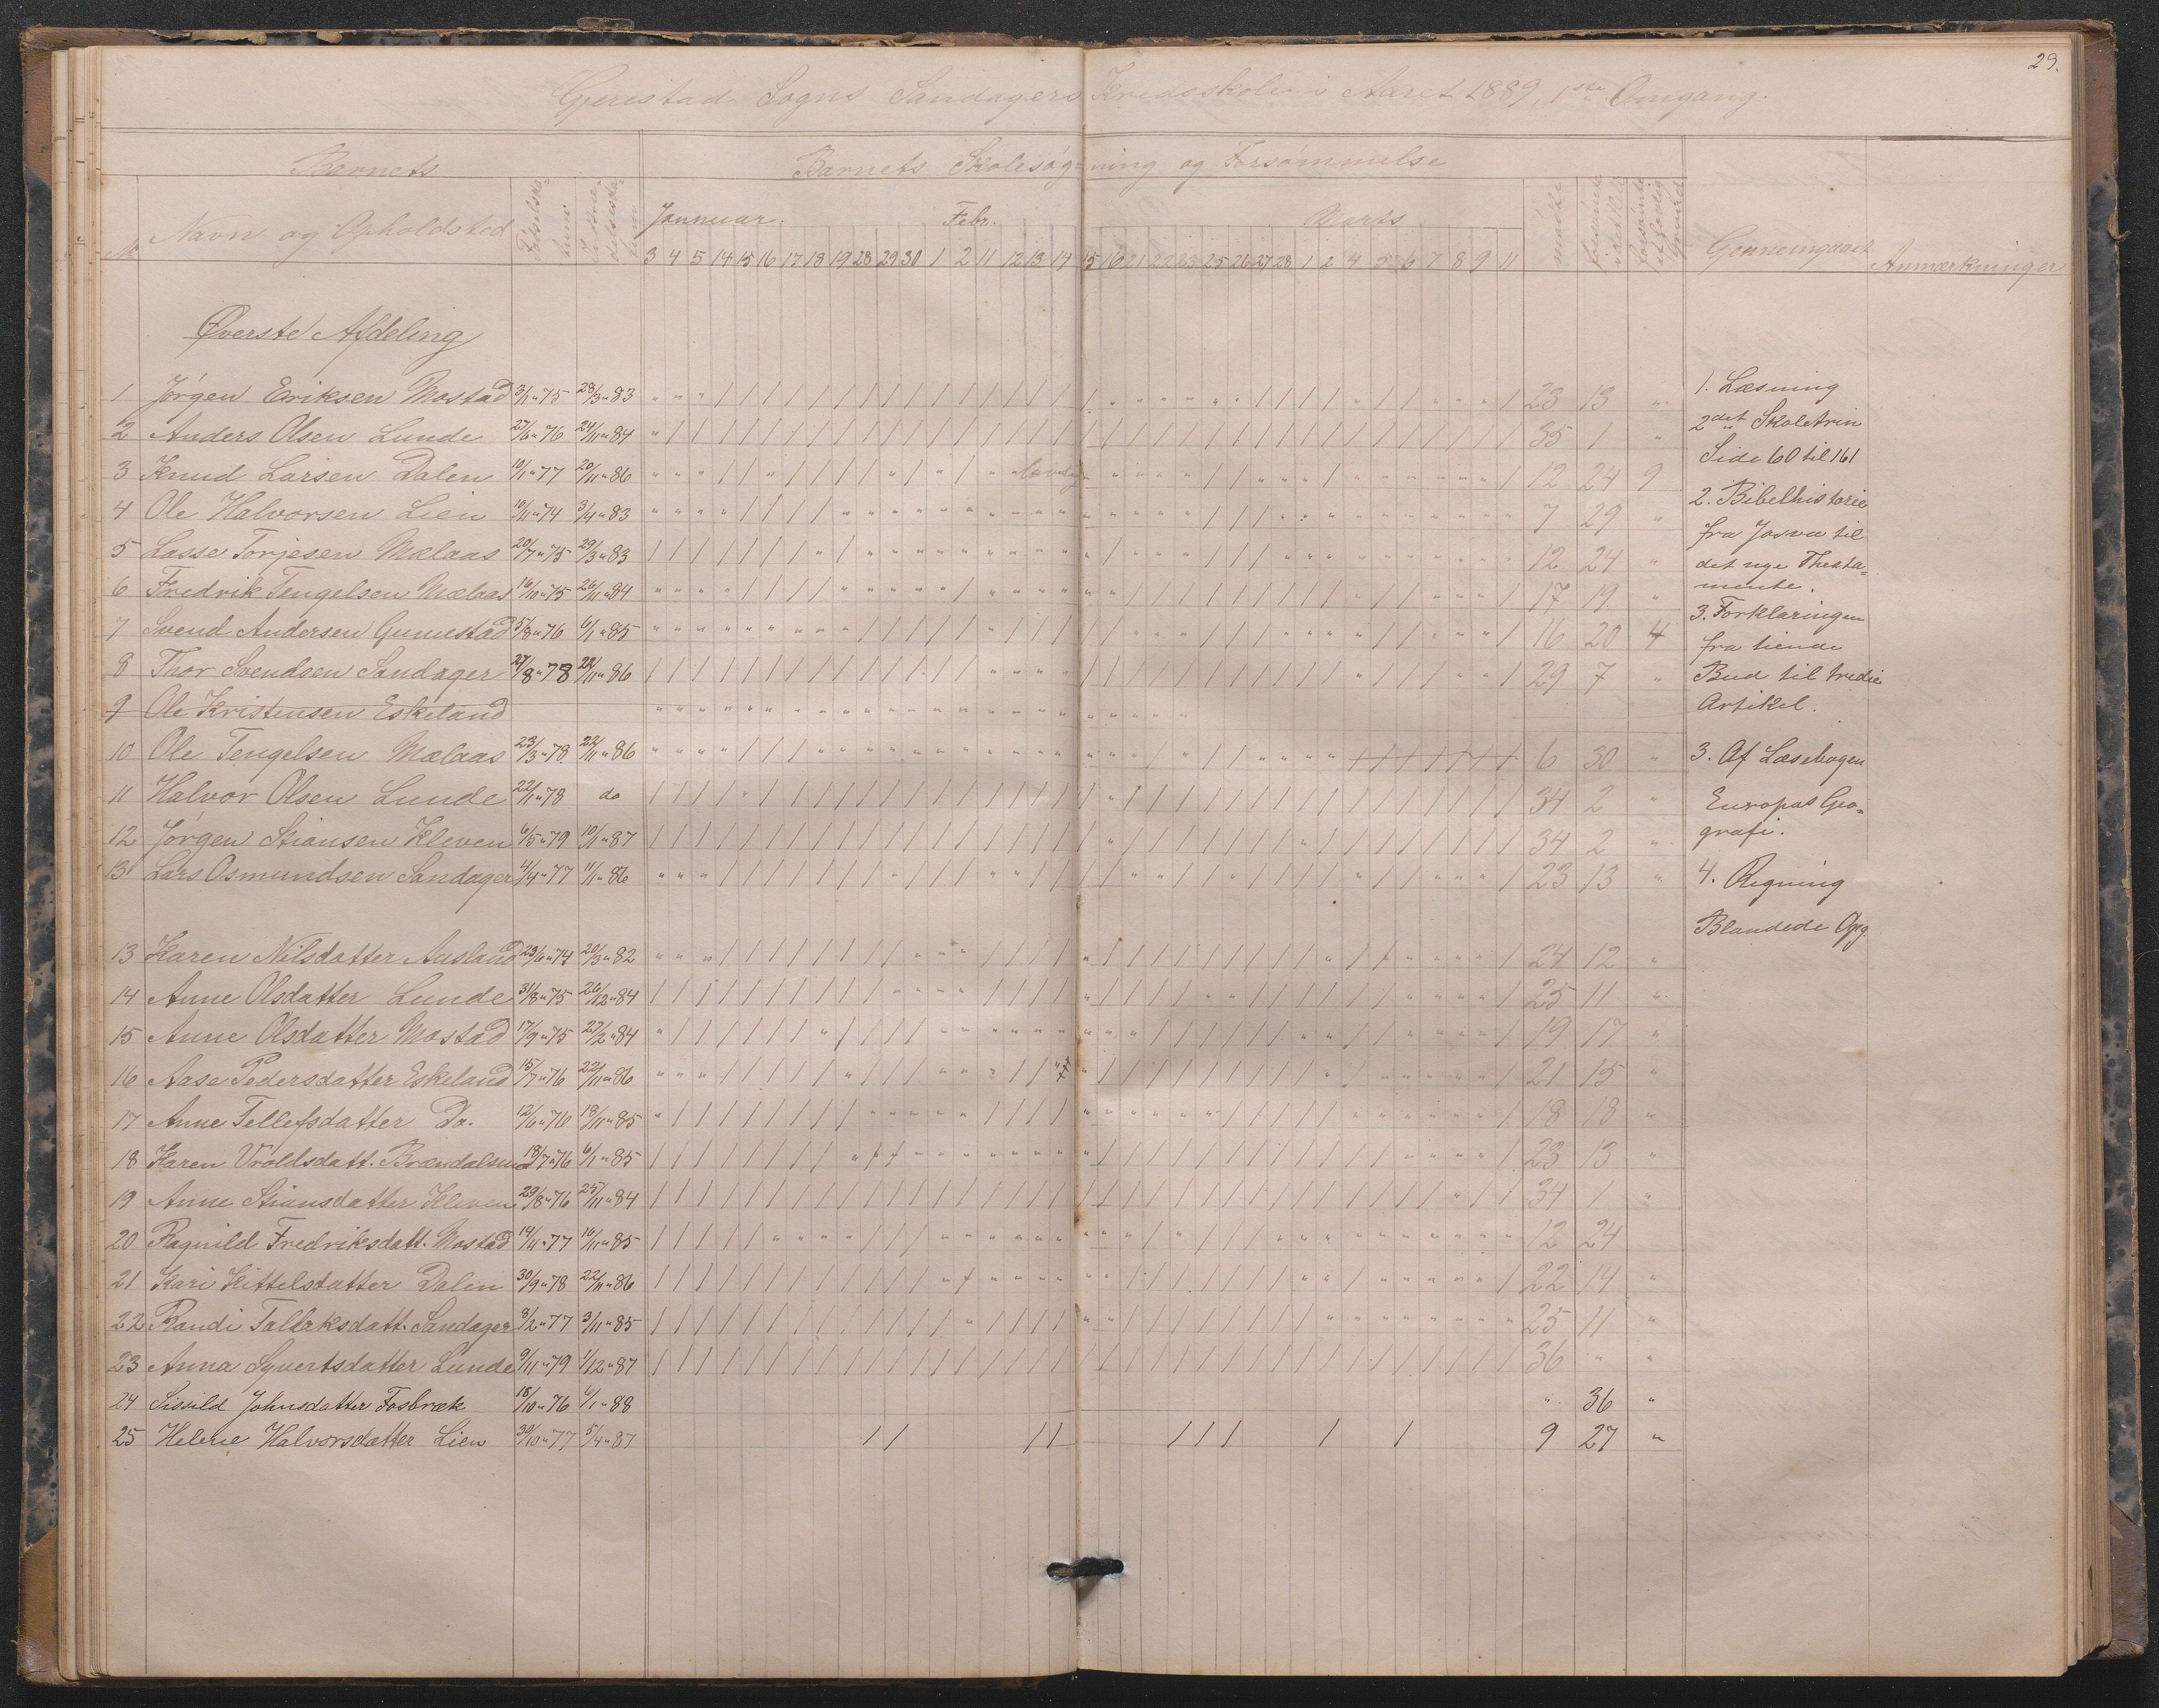 29.
Gjerestad Sogns Sandagers Kredsskole i Aaret 1889, 1ste Omgang.
Barnets
Barnets Skolesøgning og Forsømmelse
No Navn og Opholdsted
Januuar. Febr. Marts
3 4 5 14 15 16 17 18 19 28 29 30 1 2 11 12 13 14 15 16 21 22 23 25 26 27 28 1 2 4 5 6 7 8 9 11
Gennemgaaet Anmærkninger
Øverste Afdeling
1 Jørgen Eriksen Mostad 3/1 " 75 28/3 " 83 23 13 "
2 Anders Olsen Lunde 27/6 " 76 24/11 " 84 35 1 "
3 Knud Larsen Dalen 10/1 " 77 20/11 " 86 12 24 9
4 Ole Halvorsen Lien 10/11 " 74 3/4 " 83 7 29 "
5 Lasse Torjesen Mælaas 20/7 " 75 29/3 " 83 12 24 "
6 Fredrik Tengelsen Mælaas 16/10 " 75 26/11 " 84 17 19 "
7 Svend Andersen Gunnestad 5/8 " 76 6/1 " 85 16 20 4
8 Thor Svendsen Sandager 27/8 " 78 22/11 " 86 29 7 "
9 Ole Kristensen Eskeland
10 Ole Tengelsen Mælaas 23/3 " 78 22/11 " 86 6 30 "
11 Halvor Olsen Lunde 22/11 " 78 do 34 2 "
12 Jørgen Stiansen Kleven 6/5 " 79 10/1 " 87 34 2 "
13 Lars Osmundsen Sandager 4/4 " 77 11/1 " 86 23 13 "
13 Karen Nilsdatter Ausland 23/6 " 74 20/3 " 82 24 12 "
14 Anne Olsdatter Lunde 31/8 " 75 26/12 " 84 25 11 "
15 Anne Olsdatter Mostad 17/9 " 75 27/2 " 84 19 17 "
16 Aase Pedersdatter Eskeland 15/7 " 76 22/11 " 86 21 15 "
17 Anne Tellefsdatter Do. 12/6 " 76 18/11 " 85 18 18 "
18 Karen Vroldsdatt. Brændalsmo 18/7 " 76 6/1 " 85 23 13 "
19 Anne Stiansdatter Kleven 29/8 " 76 25/11 " 84 34 1 "
20 Ragnild Fredriksdatt. Mostad 14/11 " 77 16/11 " 85 12 24
21 Kari Kittelsdatter Dalen 30/9 " 78 22/11 " 86 22 14 "
22 Randi Tallaksdatt. Sandager 8/2 " 77 3/11 " 85 25 11 "
23 Anna Syvertsdatter Lunde 9/11 " 79 1/12 " 87 36 " "
24 Sissild Johnsdatter Fosbræk 18/10 " 76 6/1 " 88 " 36 "
25 Helene Halvorsdatter Lien 30/10 " 77 5/4 " 87 9 27 "
1. Læsning
2det Skoletrin
Side 60 til 161
2. Bibelhistorie
fra Josva til
det nye Thesta=
mente.
3. Forklaringen
fra tiende
Bud til tredie
Artikel.
3. Af Læsebogen
Europas Geo=
grafi.
4. Regning
Blandede Opg.